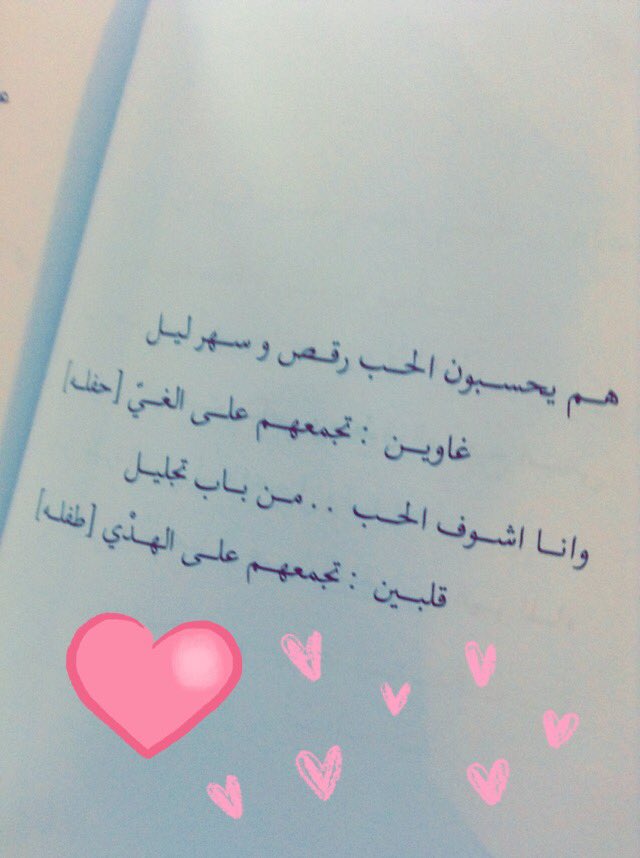 هم يحسبون الحب رقص و سهر ليل
غاوين : تجمعهم على الغيّ [حفله]
وانا اشوف الحب .. من باب تجليل
قلبين : تجمعهم على الهذْي [طفله]